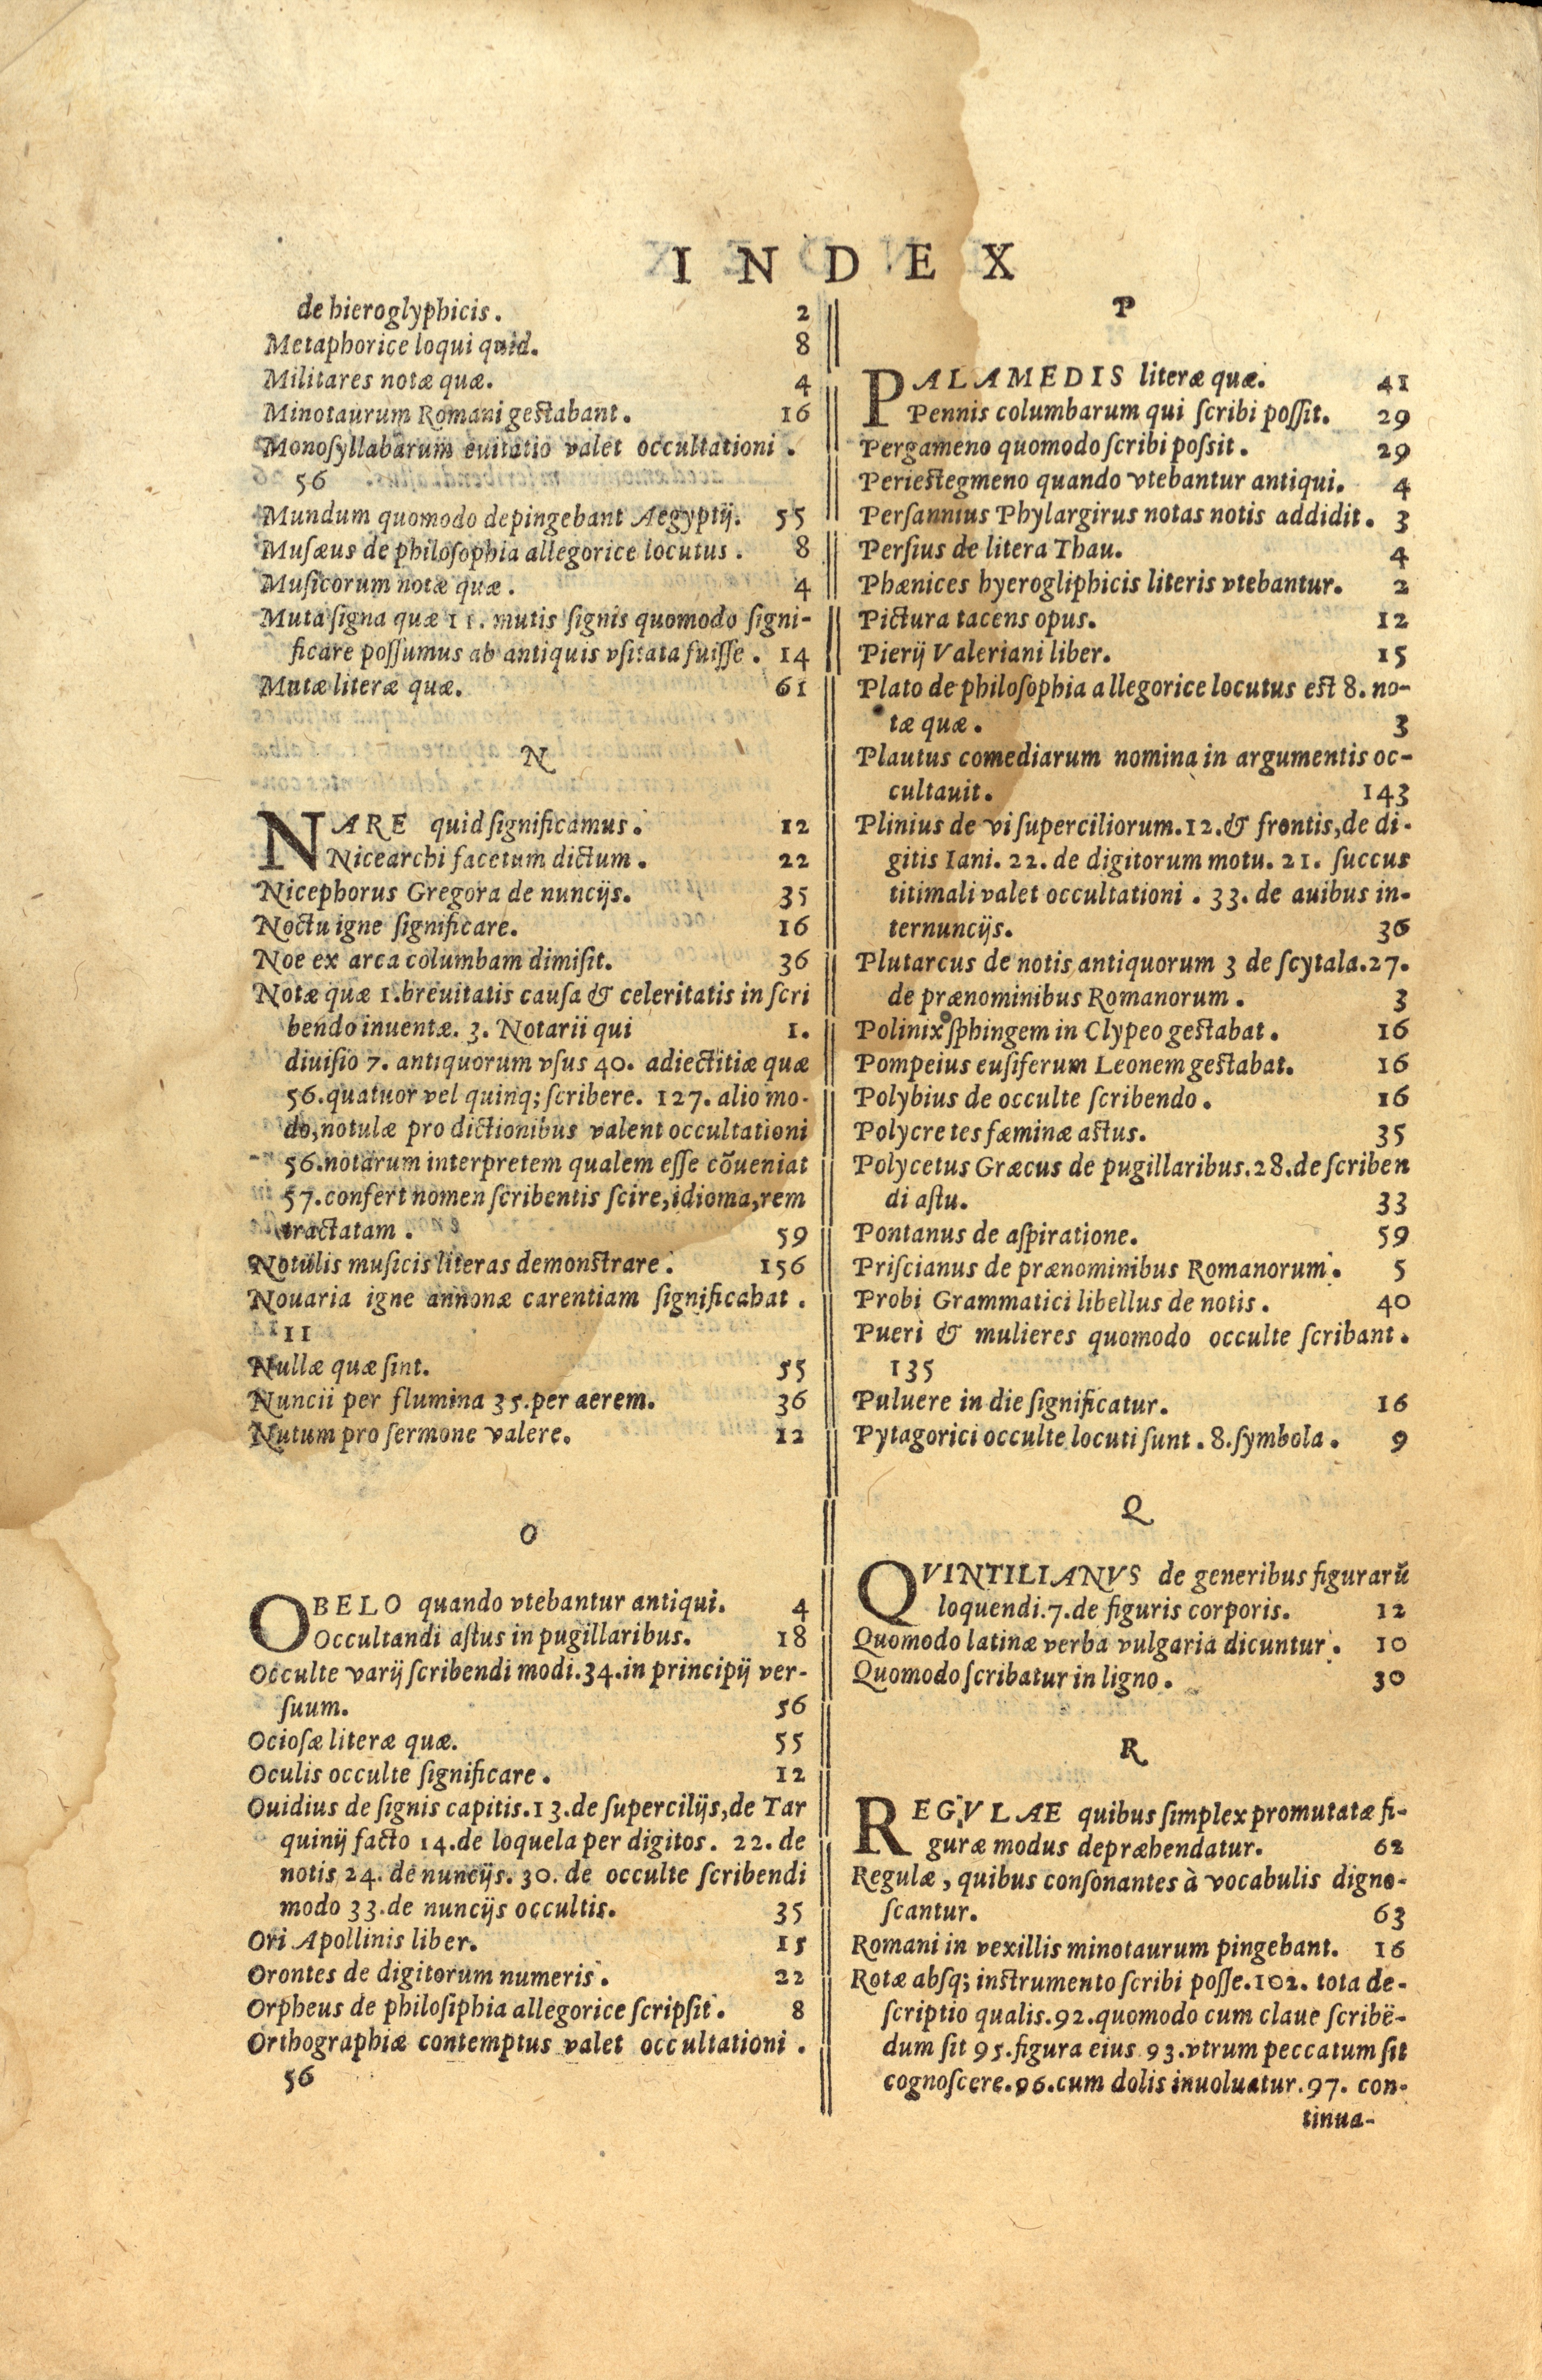 INDEX
de hieroglyphicis. 2
Metaphorice loqui quid. 8
Militares notæ quæ. 4
Minotaurum Romani gestabant. 16
Monoſyllabarum euitatio valet occultationi.
56
Mundum quomodo depingebant Aegyptij. 55
Muſæus de philoſophia allegorice locutus. 8
Muſicorum notæ quæ. 4
Muta ſigna quæ 11. mutis ſignis quomodo ſigni-
ficare poſſumus ab antiquis vſitata fuiſſe. 14
Mutæ literæ quæ. 61
N
NARE quid ſignificamus. 12
Nicearchi facetum dictum. 22
Nicephorus Gregora de nuncijs. 35
Noctu igne ſignificare. 16
Noe ex arca columbam dimiſit. 36
Notæ quæ 1. breuitatis cauſa & celeritatis in ſcri
bendo inuentæ. 3. Notarii qui 1.
diuiſio 7. antiquorum vſus 40. adiectitiæ quæ
56. quatuor vel quinq; ſcribere. 127. alio mo-
do, notulæ pro dictionibus valent occultationi
56. notarum interpretem qualem eſſe cõueniat
57. confert nomen ſcribentis ſcire, idioma, rem
tractatam. 59
Notulis muſicis literas demonſtrare. 156
Nouaria igne annonæ carentiam ſignificabat.
11
Nullæ quæ ſint. 55
Nuncii per flumina 35. per aerem. 36
Nutum pro ſermone valere. 12
O
OBELO quando vtebantur antiqui. 4
Occultandi aſtus in pugillaribus. 18
Occulte varij ſcribendi modi. 34. in principij ver-
ſuum. 56
Ocioſæ literæ quæ. 55
Oculis occulte ſignificare. 12
Ouidius de ſignis capitis. 13. de ſupercilijs, de Tar
quinij facto 14. de loquela per digitos. 22. de
notis 24. de nuncijs. 30. de occulte ſcribendi
modo 33. de nuncijs occultis. 35
Ori Apollinis liber. 15
Orontes de digitorum numeris. 22
Orpheus de philoſiphia allegorice ſcripſit. 8
Orthographiæ contemptus valet occultationi.
56
P
PALAMEDIS literæ quæ. 41
Pennis columbarum qui ſcribi poſſit. 29
Pergameno quomodo ſcribi poſsit. 29
Periestegmeno quando vtebantur antiqui. 4
Perſannius Phylargirus notas notis addidit. 3
Perſius de litera Thau. 4
Phænices hyerogliphicis literis vtebantur. 2
Pictura tacens opus. 12
Pierij Valeriani liber. 15
Plato de philoſophia allegorice locutus est 8. no-
tæ quæ. 3
Plautus comediarum nomina in argumentis oc-
cultauit. 143
Plinius de vi ſuperciliorum. 12. & frontis, de di-
gitis Iani. 22. de digitorum motu. 21. ſuccus
titimali valet occultationi. 33. de auibus in-
ternuncijs. 36
Plutarcus de notis antiquorum 3 de ſcytala. 27.
de prænominibus Romanorum. 3
Polinix ſphingem in Clypeo gestabat. 16
Pompeius enſiferum Leonem gestabat. 16
Polybius de occulte ſcribendo. 16
Polycre tes fæminæ aſtus. 35
Polycetus Græcus de pugillaribus. 28. de ſcriben
di aſtu. 33
Pontanus de aſpiratione. 59
Priſcianus de prænominibus Romanorum. 5
Probi Grammatici libellus de notis. 40
Pueri & mulieres quomodo occulte ſcribant.
135
Puluere in die ſignificatur. 16
Pytagorici occulte locuti ſunt. 8. ſymbola. 9
Q
QVINTILIANVS de generibus figurarũ
loquendi. 7. de figuris corporis. 12
Quomodo latinæ verba vulgaria dicuntur. 10
Quomodo ſcribatur in ligno. 30
R
REGVLAE quibus ſimplex promutatæ fi-
guræ modus depræhendatur. 62
Regulæ, quibus conſonantes à vocabulis digno-
ſcantur. 63
Romani in vexillis minotaurum pingebant. 16
Rotæ absq; inſtrumento ſcribi poſſe. 102. tota de-
ſcriptio qualis. 92. quomodo cum claue ſcribē-
dum ſit 95. figura eius 93. vtrum peccatum ſit
cognoſcere. 96. cum dolis inuoluatur. 97. con-
tinua-